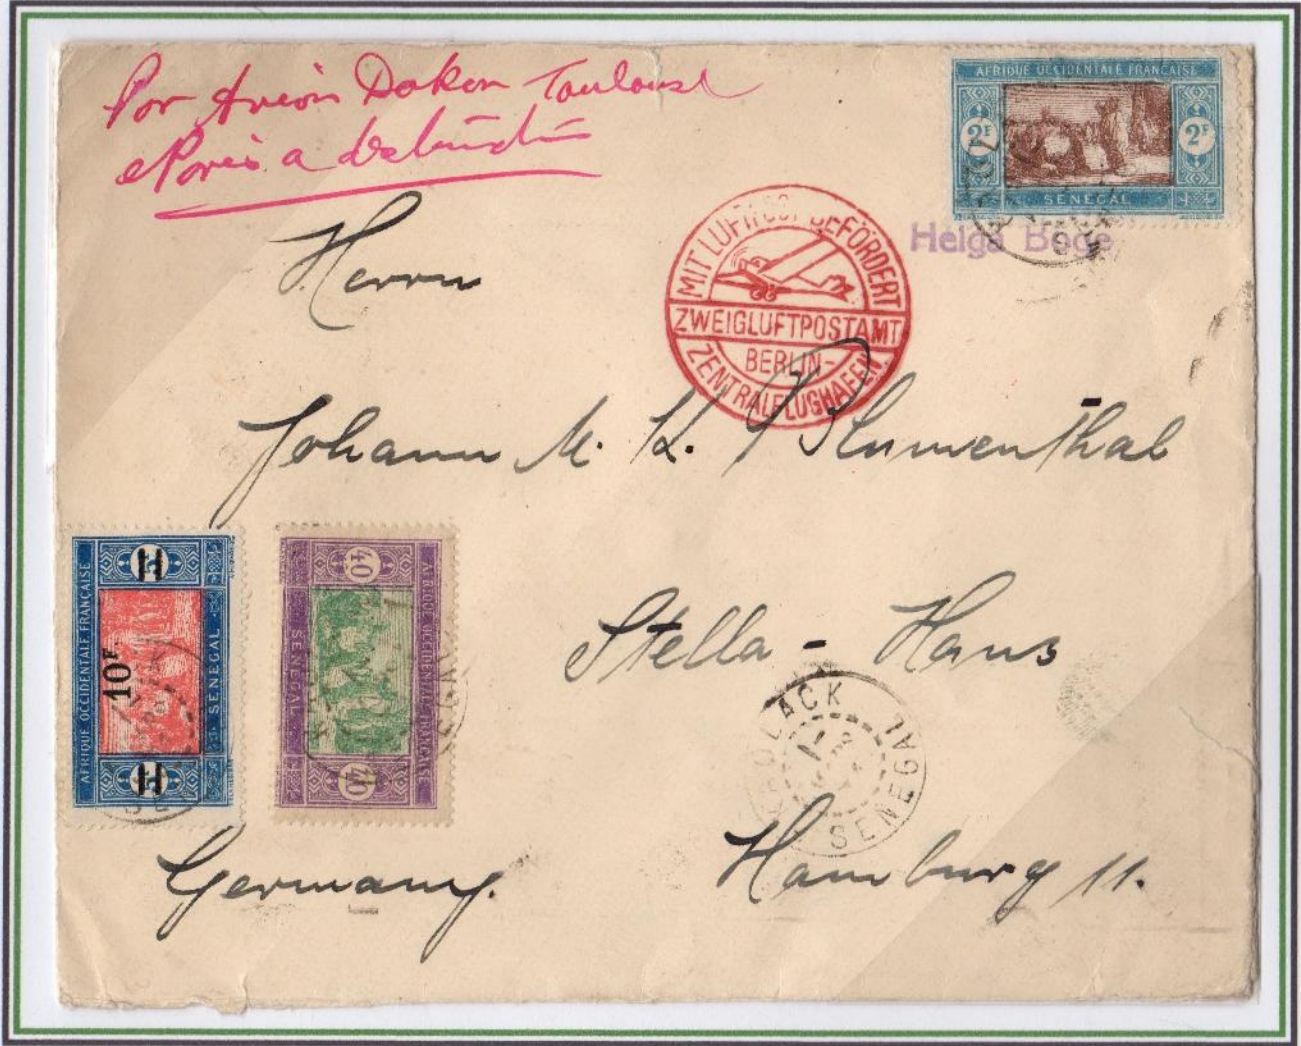 Par Avion Dakar Toulouse
et Paris a destination
AFRIQUE OCCIDENTALE FRANÇAISE
2F 2F
SENEGAL
Helga Böge
Herrn
MIT LUFTPOST BEFÖRDERT
ZWEIGLUFTPOSTAMT
BERLIN-
ZENTRALFLUGHAFEN
Johann M. K. Blumenthal
AFRIQUE OCCIDENTALE FRANÇAISE
10F.
SENEGAL
40
AFRIQUE OCCIDENTALE FRANÇAISE
SENEGAL
40
Stella - Haus
KAOLACK
SENEGAL
Hamburg 11.
Germany.